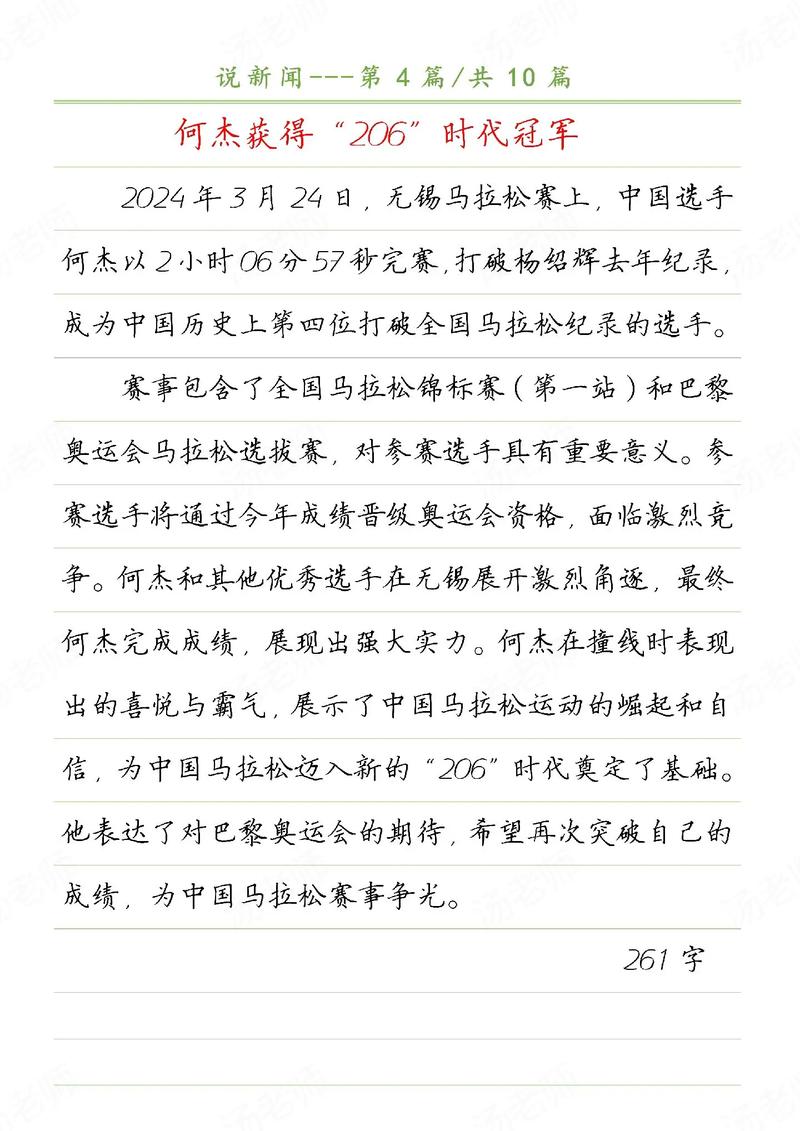 说新闻---第 4 篇/共 10 篇
何杰获得“206”时代冠军
2024年3月24日，无锡马拉松赛上，中国选手
何杰以2小时06分57秒完赛，打破杨绍辉去年纪录，
成为中国历史上第四位打破全国马拉松纪录的选手。
赛事包含了全国马拉松锦标赛（第一站）和巴黎
奥运会马拉松选拔赛，对参赛选手具有重要意义。参
赛选手将通过今年成绩晋级奥运会资格，面临激烈竞
争。何杰和其他优秀选手在无锡展开激烈角逐，最终
何杰完成成绩，展现出强大实力。何杰在撞线时表现
出的喜悦与霸气，展示了中国马拉松运动的崛起和自
信，为中国马拉松迈入新的“206”时代奠定了基础。
他表达了对巴黎奥运会的期待，希望再次突破自己的
成绩，为中国马拉松赛事争光。
261 字
汤老师